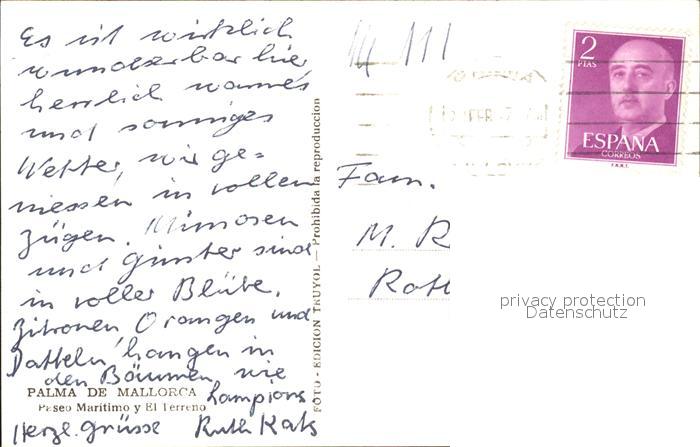 Es ist wirklich
wunderbar hier
herrlich warmes
und sonniges
Wetter, wir ge=
niessen in vollen
Zügen. Mimosen
und Ginster sind
in voller Blüte.
Zitronen, Orangen und
Datteln hangen in
den Bäumen, wie
Lampions
Herzl. Grüsse Ruth Kats
PALMA DE MALLORCA
Paseo Marítimo y El Terreno
FOTO - EDICION TRUYOL — Prohibida la reproduccion
2
PTAS
ESPAÑA
CORREOS
F.N.M.T.
FEB
Fam.
M. R
Roth
privacy protection
Datenschutz